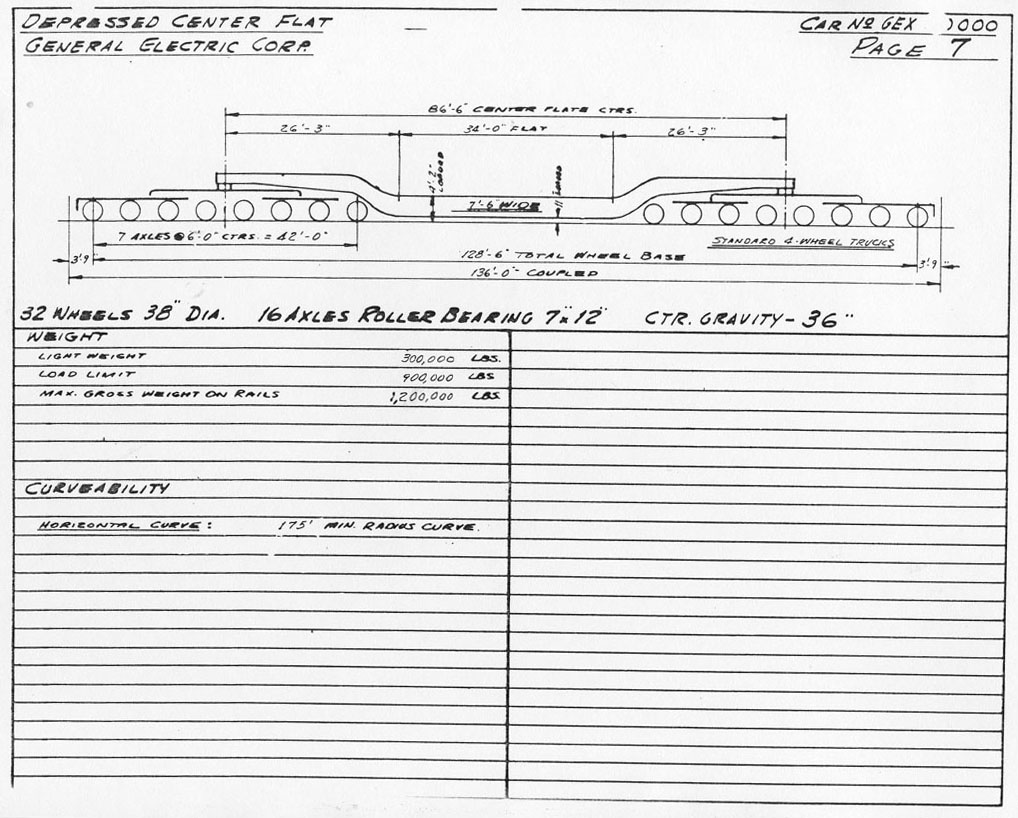 DEPRESSED CENTER FLAT
GENERAL ELECTRIC CORP.
CAR Nº GEX 1000
PAGE 7
86'-6" CENTER PLATE CTRS.
26'-3" 34'-0" FLAT 26'-3"
4'-2" LOADED
11" LOADED
7'-6" WIDE
7 AXLES @ 6'-0" CTRS. = 42'-0"
STANDARD 4-WHEEL TRUCKS
3'9" 128'-6" TOTAL WHEEL BASE 3'9"
136'-0" COUPLED
32 WHEELS 38" DIA. 16 AXLES ROLLER BEARING 7"x12" CTR. GRAVITY - 36"
WEIGHT
LIGHT WEIGHT 300,000 LBS.
LOAD LIMIT 900,000 LBS
MAX. GROSS WEIGHT ON RAILS 1,200,000 LBS.
CURVEABILITY
HORIZONTAL CURVE: 175' MIN. RADIUS CURVE.